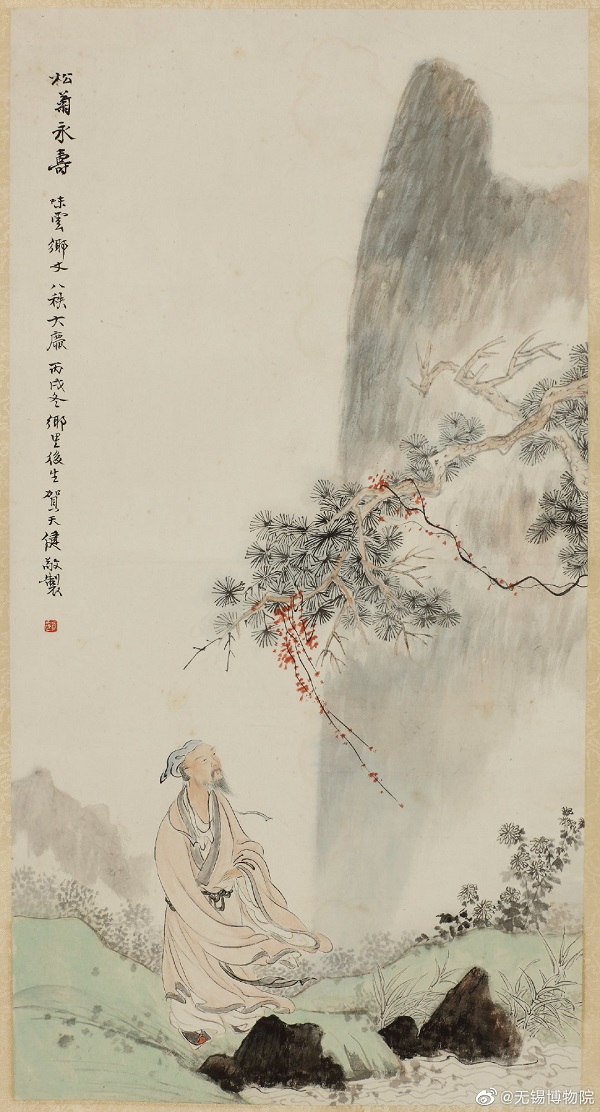 松菊永壽 味雲鄉丈八秩大慶 丙戌冬鄉里後生賀天健敬製
@无锡博物院